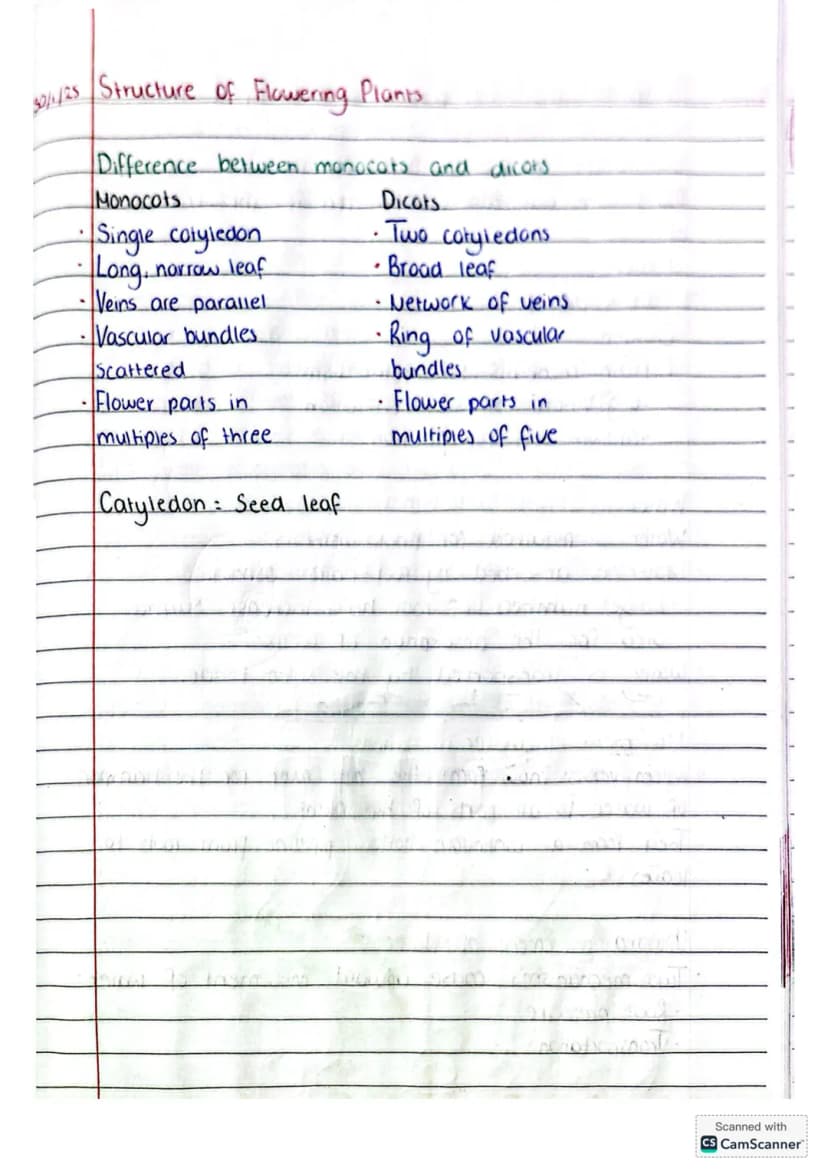 30/1/25 Structure of Flowering Plants
Difference between monocots and dicots
Monocots Dicots
· Single cotyledon · Two cotyledons
· Long, narrow leaf · Broad leaf
· Veins are parallel · Network of veins
· Vascular bundles · Ring of vascular
scattered bundles
· Flower parts in · Flower parts in
multiples of three multiples of five
Cotyledon = Seed leaf
Scanned with
CS CamScanner